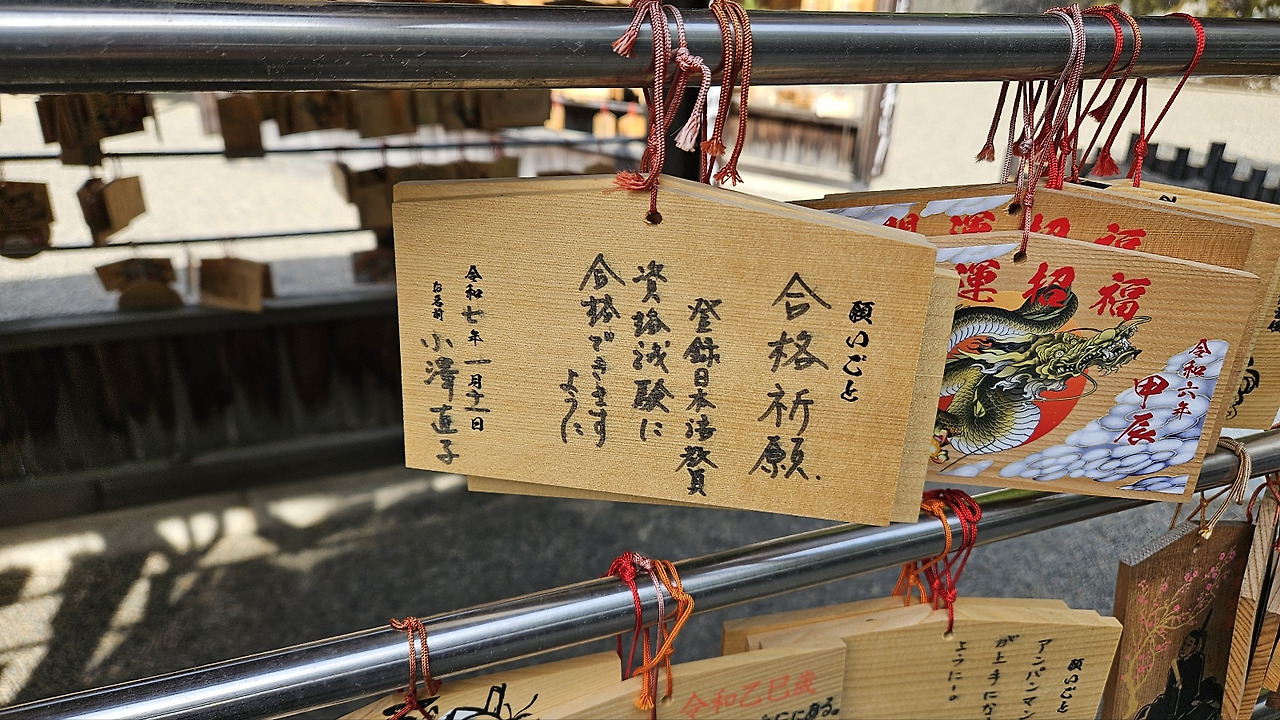 願いごと
合格祈願
登録日本語教員
資格試験に
合格できます
ように
令和七年 一月十一日
お名前 小澤直子
運招福
運招福
令和六年
甲辰
令和乙巳歳
にある。
願いごと
アンパンマン
が上手にな
ように